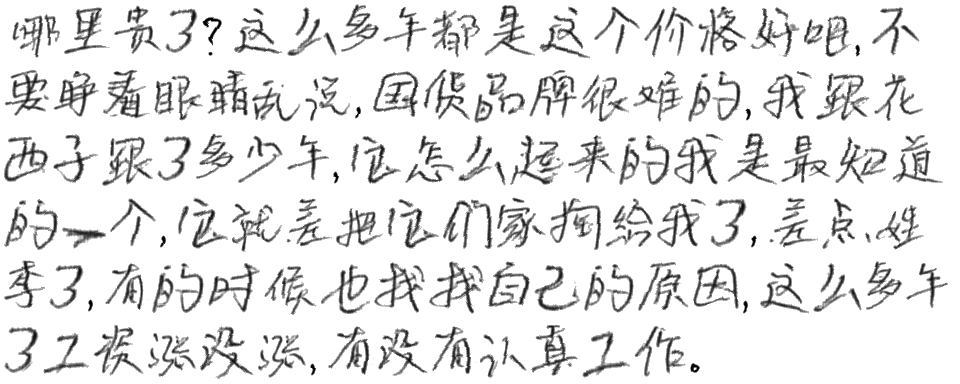 哪里贵了?这么多年都是这个价格好吧,不
要睁着眼睛乱说,国货品牌很难的,我跟花
西子跟了多少年,它怎么起来的我是最知道
的一个,它就差把它们家掏给我了,差点姓
李了,有的时候也找找自己的原因,这么多年
了工资涨没涨,有没有认真工作。